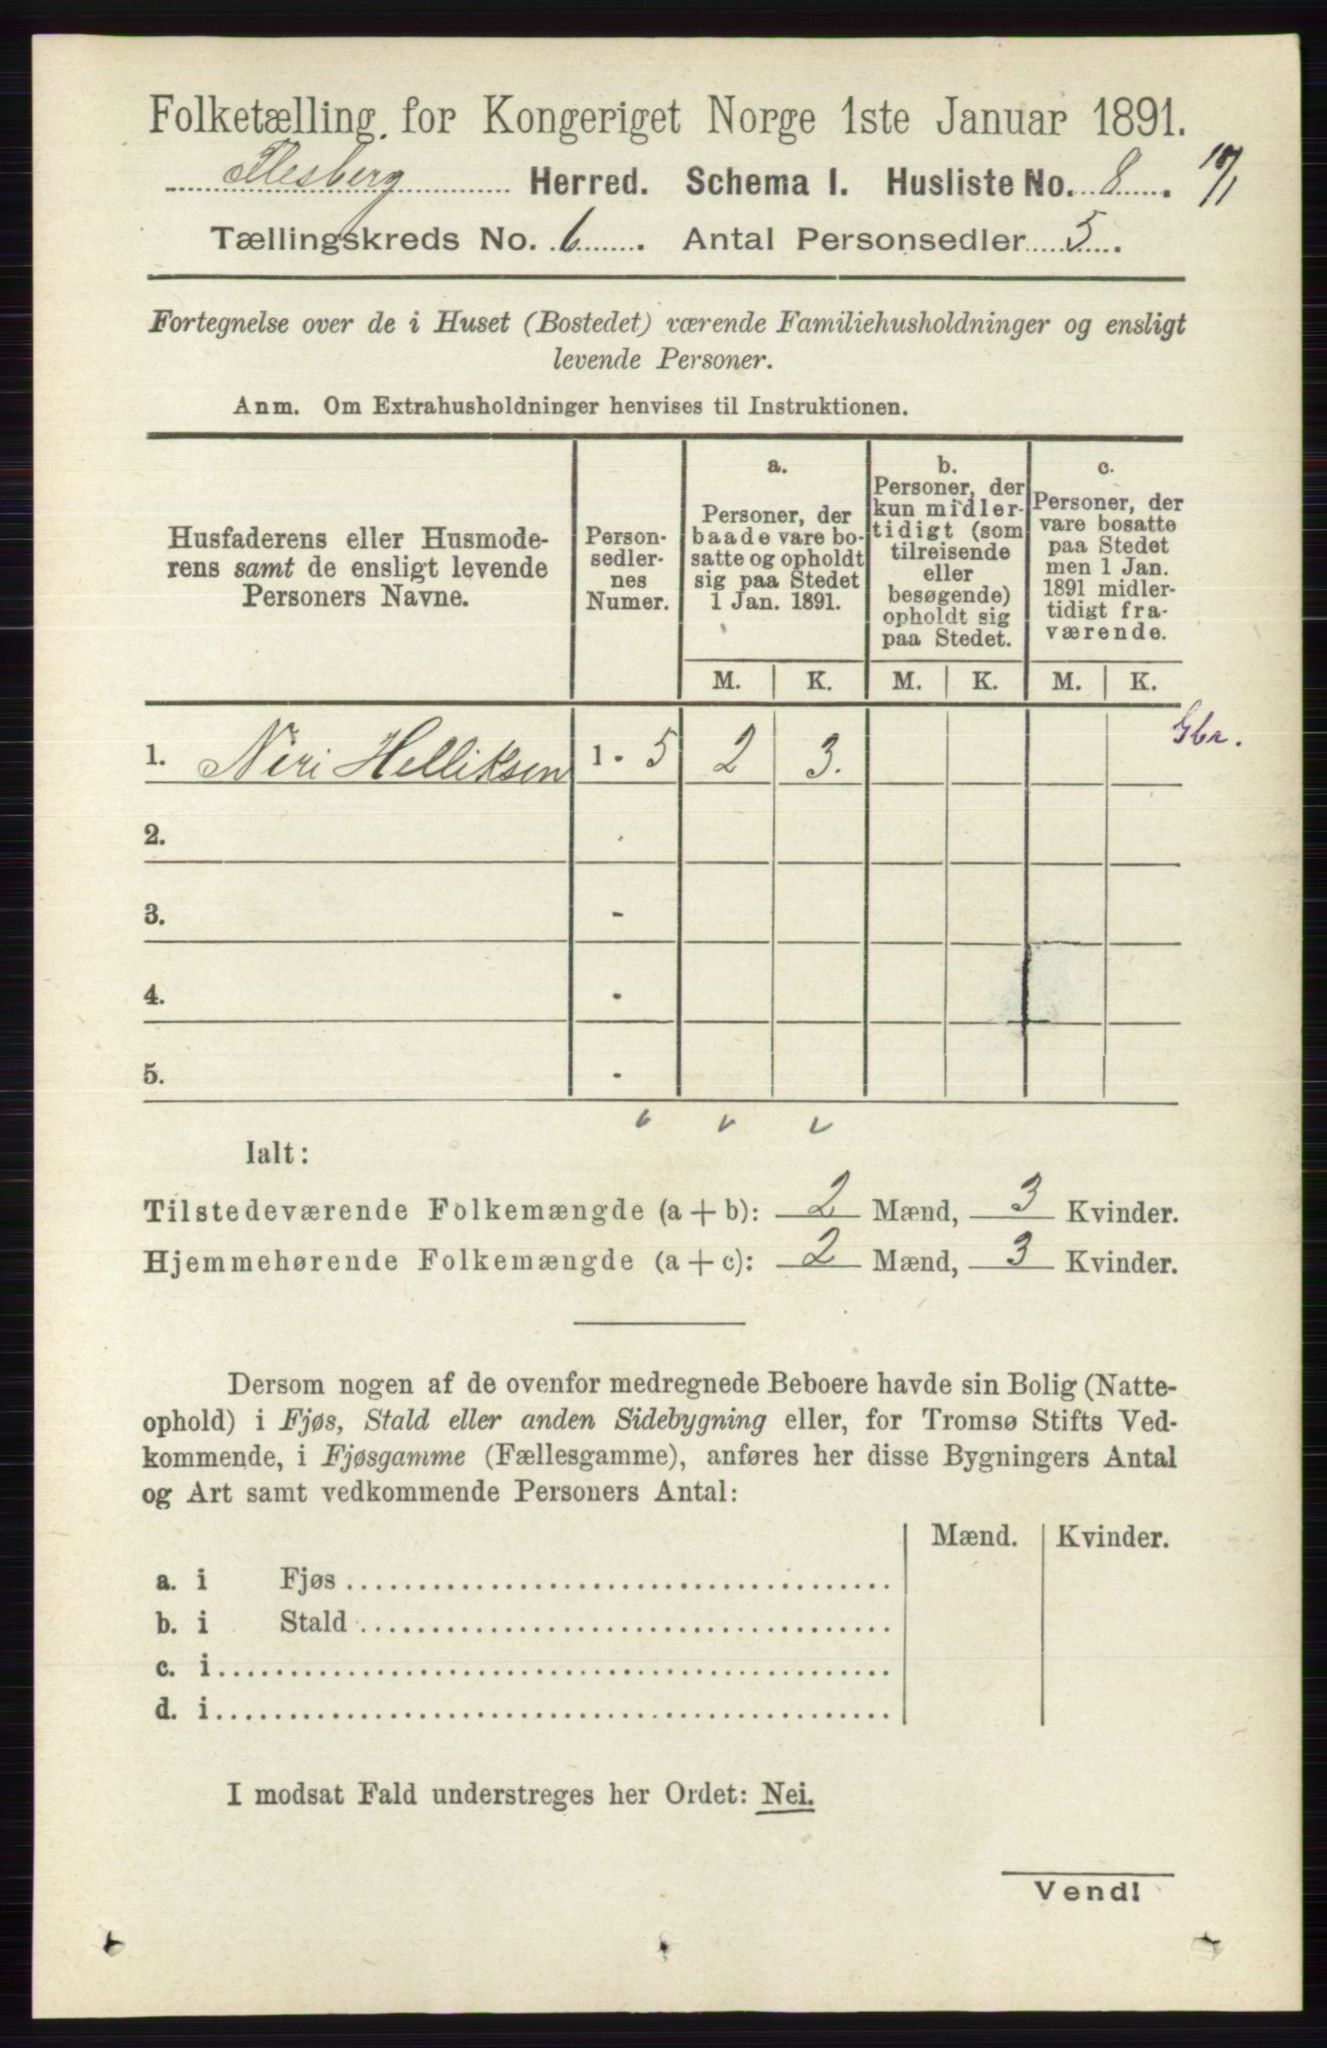 Folketælling for Kongeriget Norge 1ste Januar 1891.
Flesberg Herred. Schema I. Husliste No. 8.
Tællingskreds No. 6. Antal Personsedler 5.
Fortegnelse over de i Huset (Bostedet) værende Familiehusholdninger og ensligt
levende Personer.
Anm. Om Extrahusholdninger henvises til Instruktionen.
Husfaderens eller Husmode-
rens samt de ensligt levende
Personers Navne.
Person-
sedler-
nes
Numer.
a.
Personer, der
baade vare bo-
satte og opholdt
sig paa Stedet
1 Jan. 1891.
b.
Personer, der
kun midler-
tidigt (som
tilreisende
eller
besøgende)
opholdt sig
paa Stedet.
c.
Personer, der
vare bosatte
paa Stedet
men 1 Jan.
1891 midler-
tidigt fra-
værende.
M. K. M. K. M. K.
1. Neri Helliksen 1 - 5 2 3. Gbr.
2. -
3. -
4. -
5. -
Ialt:
Tilstedeværende Folkemængde (a + b): 2 Mænd, 3 Kvinder.
Hjemmehørende Folkemængde (a + c): 2 Mænd, 3 Kvinder.
Dersom nogen af de ovenfor medregnede Beboere havde sin Bolig (Natte-
ophold) i Fjøs, Stald eller anden Sidebygning eller, for Tromsø Stifts Ved-
kommende, i Fjøsgamme (Fællesgamme), anføres her disse Bygningers Antal
og Art samt vedkommende Personers Antal:
Mænd. Kvinder.
a. i Fjøs
b. i Stald
c. i
d. i
I modsat Fald understreges her Ordet: Nei.
Vend!